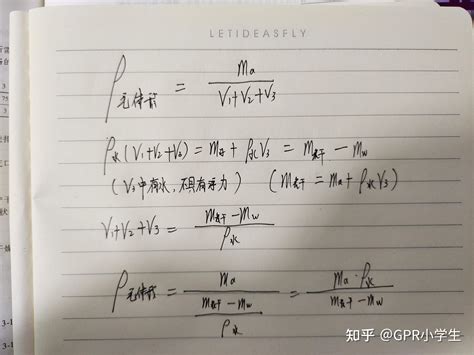 LETIDEASFLY
ρ毛体积 = ma / (V1+V2+V3)
ρ水(V1+V2+V3) = m浮 + ρ水V3 = m表干 − mw
(V3中有水,不具有浮力) (m表干 = ma + ρ水V3)
V1+V2+V3 = (m表干 − mw) / ρ水
ρ毛体积 = ma / ((m表干 − mw) / ρ水) = ma · ρ水 / (m表干 − mw)
知乎 @GPR小学生